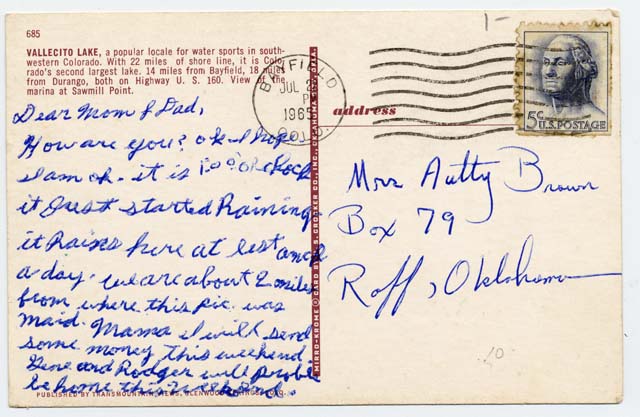 685
VALLECITO LAKE, a popular locale for water sports in south-
western Colorado. With 22 miles of shore line, it is Colo-
rado's second largest lake. 14 miles from Bayfield, 18 miles
from Durango, both on Highway U. S. 160. View of the
marina at Sawmill Point.
Dear Mom & Dad,
How are you? ok I hope
I am ok. it is 1:00 o clock
it Just started Raining
it Rains here at lest onch
a day. we are about 2 miles
from where this pic. was
maid. Mama I will send
some money this weekend
Gene and Rodger will problie
be home this weekend.
PUBLISHED BY TRANSMOUNTAIN NEWS, GLENWOOD SPRINGS, COLO.
MIRRO-KROME ® CARD BY H. S. CROCKER CO., INC.,
BAYFIELD
JUL
P
1965
COLO.
address
5¢
U.S. POSTAGE
Mrs Autty Brown
Box 79
Roff, Oklahoma